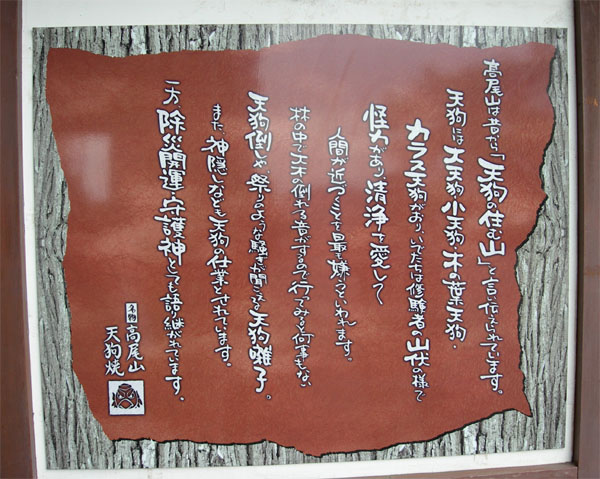 高尾山は昔から「天狗の住む山」と言い伝えられています。
天狗には大天狗・小天狗・木の葉天狗・
カラス天狗がおり、いでたちは修験者の山伏の様で
怪力があり清浄を愛して
人間が近づくことを最も嫌うといわれます。
林の中で大木の倒れる音がするので行ってみても何事もない
天狗倒しや、祭りのような騒ぎが聞こえる天狗囃子。
また、神隠しなども天狗の仕業とされています。
一方、除災開運の守護神としても語り継がれています。
名物
高尾山
天狗焼